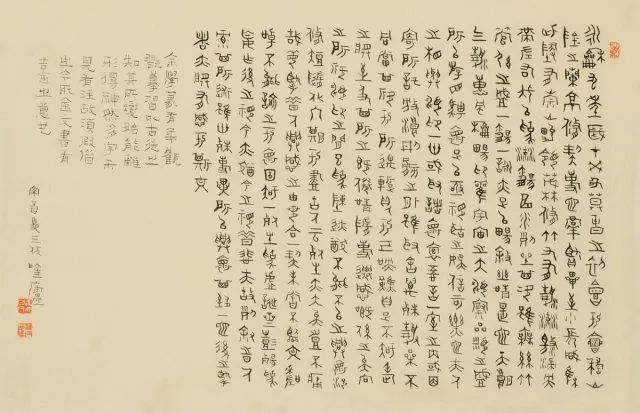 永龢九年歲在癸丑莫春之初會于會稽山
陰之蘭亭修禊事也羣賢畢至少長咸集
此地有崇山峻領茂林修竹又有清流激湍映
帶左右引以為流觴曲水列坐其次雖無絲竹
管弦之盛一觴一詠亦足以暢敘幽情是日也天朗
气清惠風和暢仰觀宇宙之大俯察品類之盛
所以游目騁懷足以極視聽之娛信可樂也夫人
之相與俯仰一世或取諸懷抱悟言一室之內或因
寄所託放浪形骸之外雖取舍萬殊靜躁不
同當其欣于所遇暫得于己快然自足不知老
之將至及其所之既倦情隨事遷感慨係之矣向
之所欣俛仰之間以為陳跡猶不能不以之興懷況
修短隨化終期于盡古人云死生亦大矣豈不痛
哉每覽昔人興感之由若合一契未嘗不臨文嗟
悼不能諭之于懷固知一死生為虛誕齊彭殤為
妄作後之視今亦猶今之視昔悲夫故列敘時人
錄其所述雖世殊事異所以興懷其致一也後之覽
者亦將有感于斯文
余學篆有年觀
摹習以古
知其所變始能離
形得神然多字未
見者注故須假借
今以金文書有
吉金之意也